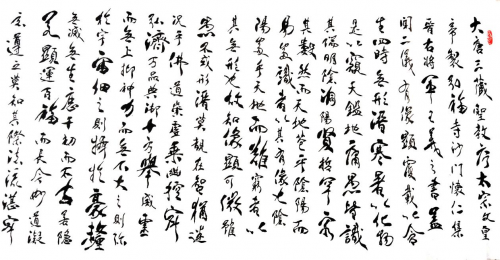 大唐三藏聖教序太宗文皇
帝製弘福寺沙門懷仁集
晉右將軍王羲之書蓋
聞二儀有像顯覆載以含
生四時無形潛寒暑以化物
是以窺天鑑地庸愚皆識
其端明陰洞陽賢哲罕窮
其數然而天地苞乎陰陽而
易識者以其有像也陰
陽處乎天地而難窮者以
其無形也故知像顯可徵雖
愚不惑形潛莫覩在智猶迷
況乎佛道崇虛乘幽控寂
弘濟萬品典御十方舉威靈
而無上抑神力而無下大之則弥
於宇宙細之則攝於豪釐
無滅無生歷千劫而不古若隱
若顯運百福而長今妙道凝
玄遵之莫知其際法流湛寂